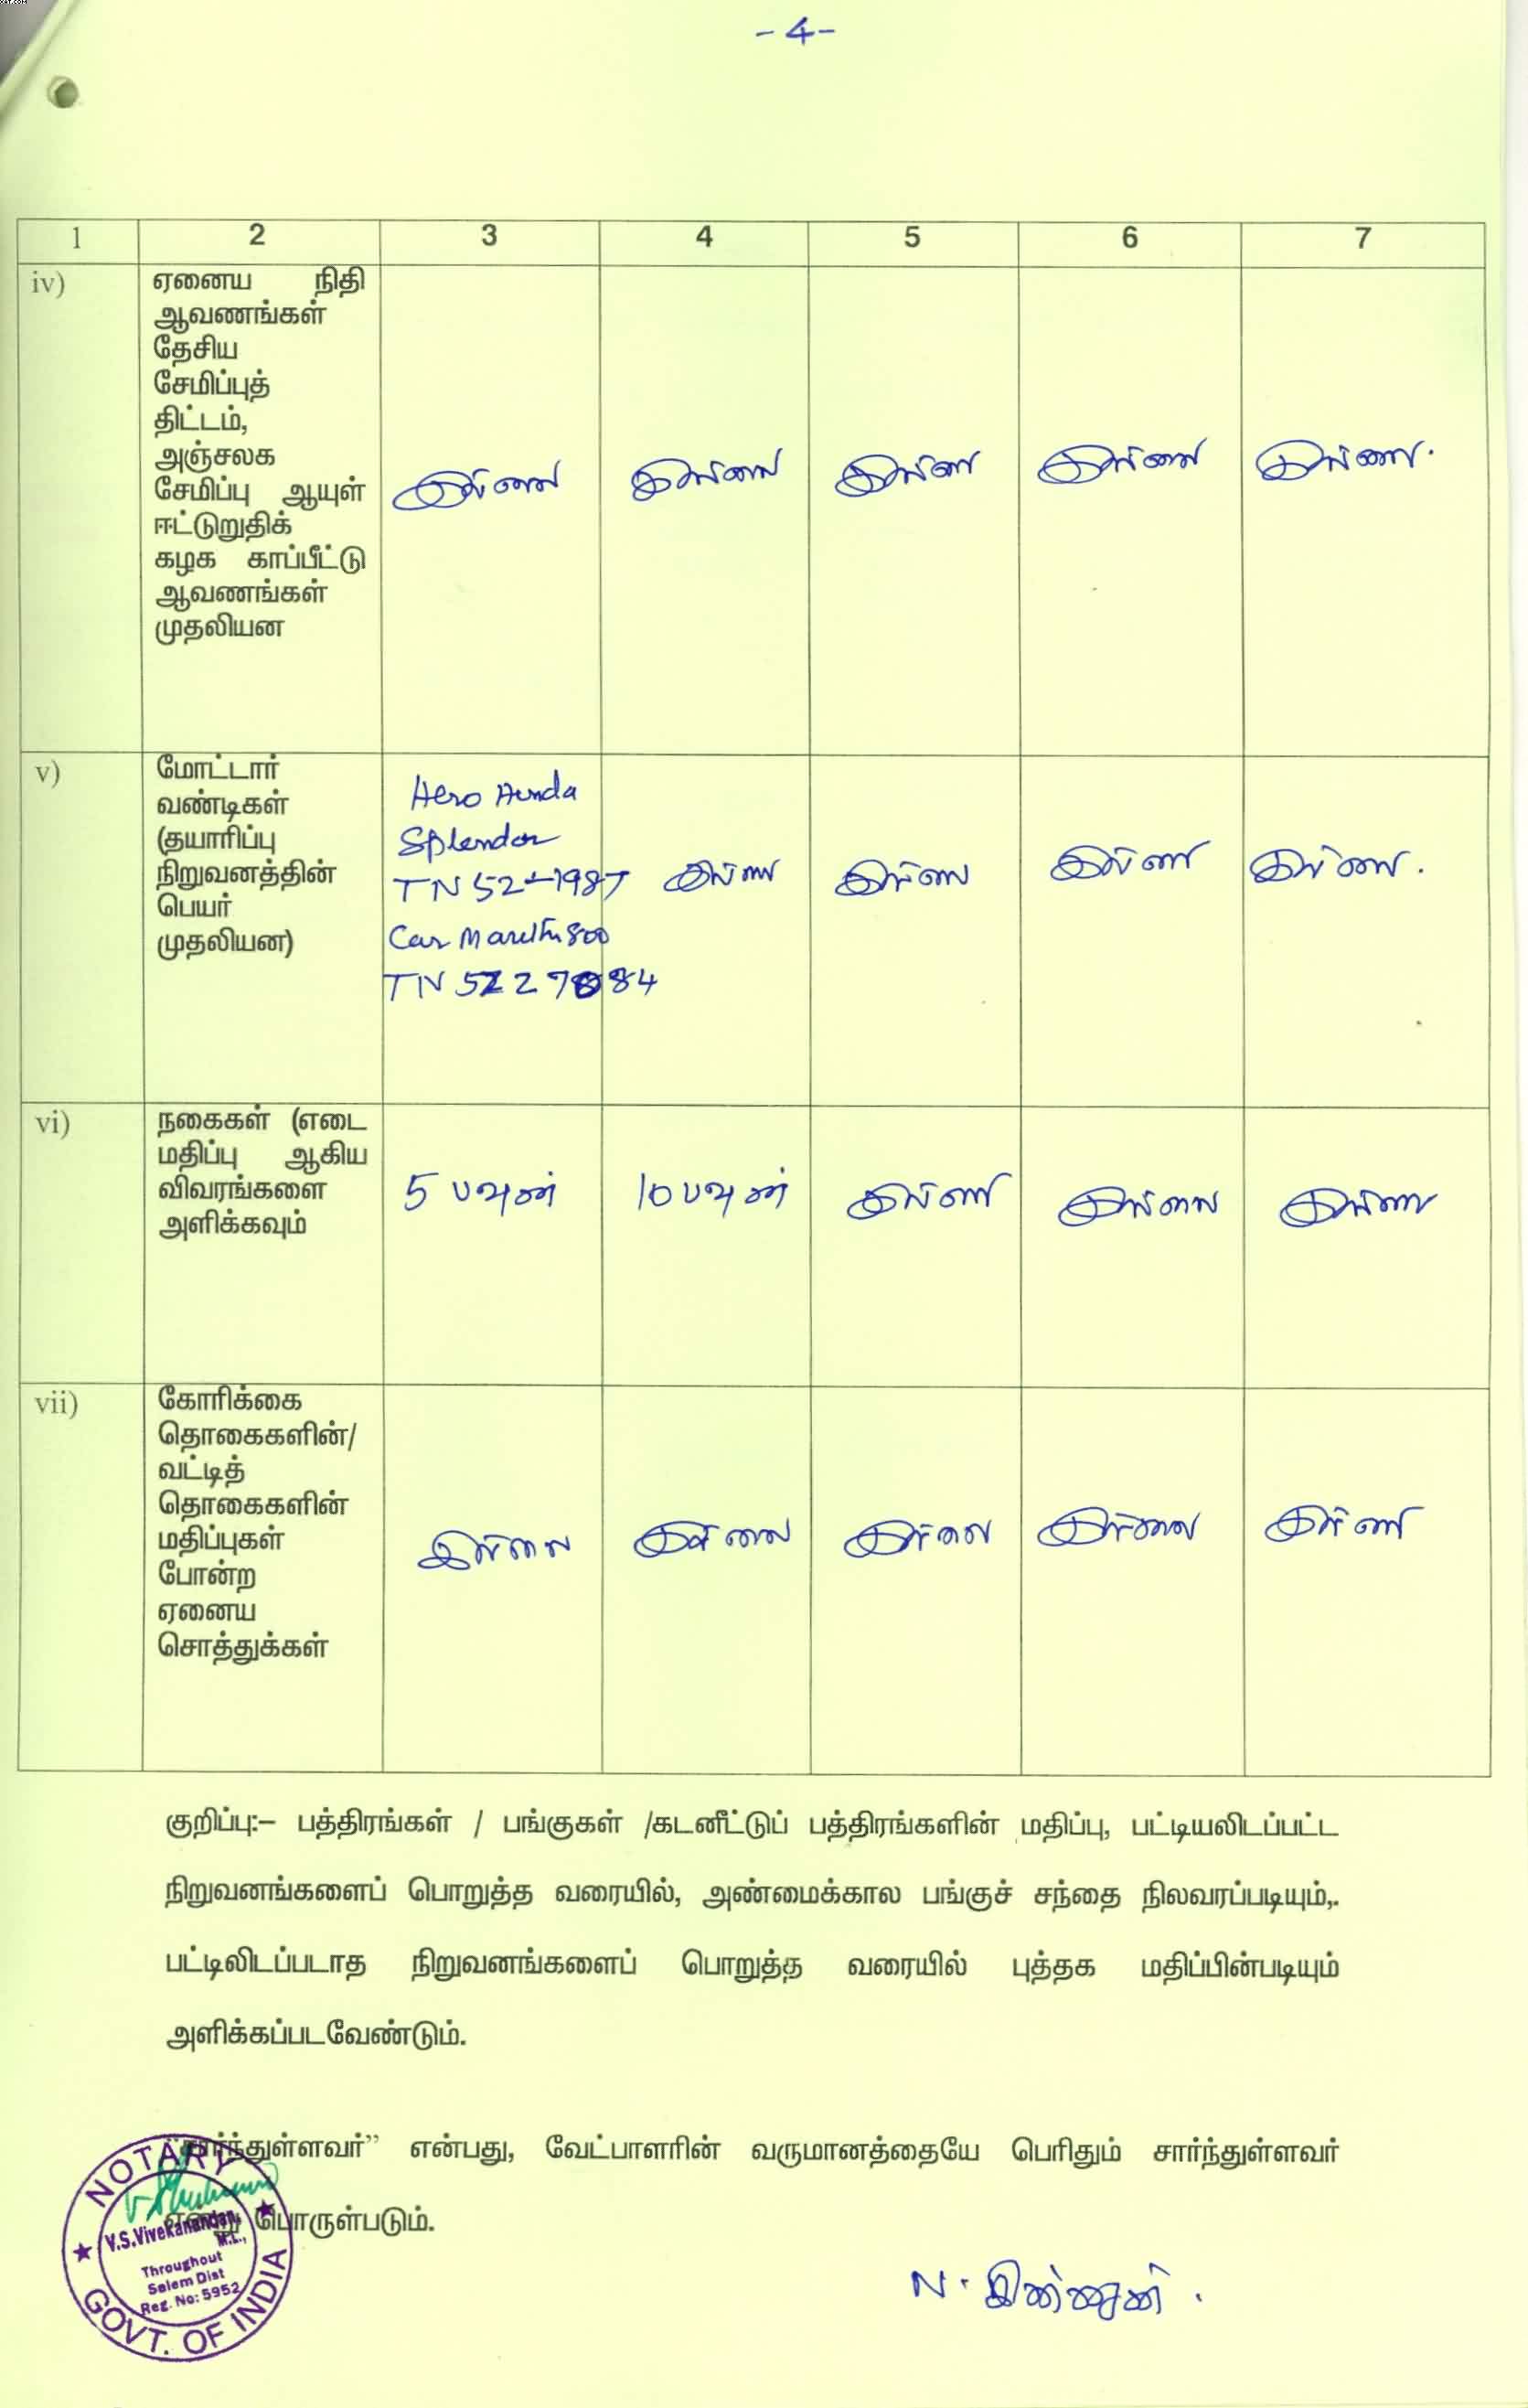 - 4 -
1 2 3 4 5 6 7
iv) ஏனைய நிதி
ஆவணங்கள்
தேசிய
சேமிப்புத்
திட்டம்,
அஞ்சலக
சேமிப்பு ஆயுள்
ஈட்டுறுதிக்
கழக காப்பீட்டு
ஆவணங்கள்
முதலியன
இல்லை இல்லை இல்லை இல்லை இல்லை.
v) மோட்டார்
வண்டிகள்
(தயாரிப்பு
நிறுவனத்தின்
பெயர்
முதலியன)
Hero Honda
Splendor
TN 52 - 1987
Car Maruthi 800
TN 52 2784
இல்லை இல்லை இல்லை இல்லை.
vi) நகைகள் (எடை
மதிப்பு ஆகிய
விவரங்களை
அளிக்கவும்
5 பவுன் 10 பவுன் இல்லை இல்லை இல்லை
vii) கோரிக்கை
தொகைகளின்/
வட்டித்
தொகைகளின்
மதிப்புகள்
போன்ற
ஏனைய
சொத்துக்கள்
இல்லை இல்லை இல்லை இல்லை இல்லை
குறிப்பு:– பத்திரங்கள் / பங்குகள் /கடனீட்டுப் பத்திரங்களின் மதிப்பு, பட்டியலிடப்பட்ட
நிறுவனங்களைப் பொறுத்த வரையில், அண்மைக்கால பங்குச் சந்தை நிலவரப்படியும்,.
பட்டிலிடப்படாத நிறுவனங்களைப் பொறுத்த வரையில் புத்தக மதிப்பின்படியும்
அளிக்கப்படவேண்டும்.
“சார்ந்துள்ளவர்” என்பது, வேட்பாளரின் வருமானத்தையே பெரிதும் சார்ந்துள்ளவர்
என்று பொருள்படும்.
NOTARY
V.S.Vivekanandan,
M.L.,
Throughout
Salem Dist
Reg. No: 5952
GOVT. OF INDIA